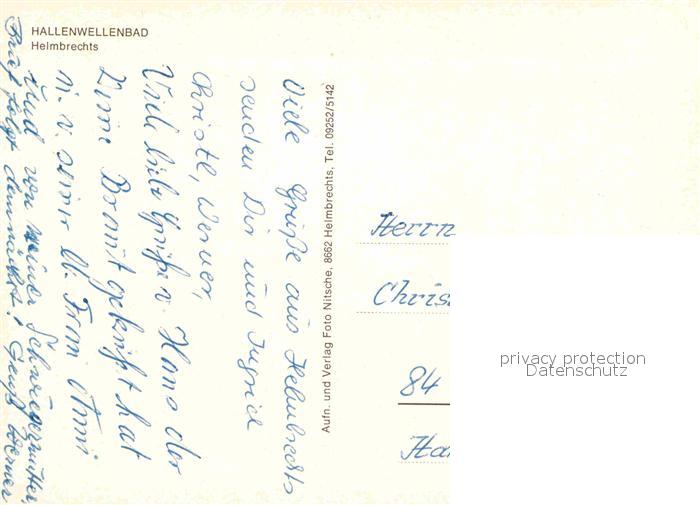 HALLENWELLENBAD
Helmbrechts
Viele Grüße aus Helmbrechts
senden Dir und Ingrid
Christl, Werner,
Viele liebe Grüße v. Hans der
Zimi Bromit geknipst hat
u. v. seiner lb. Frau Anni
Und von meiner Schwiegermutter,
Brief folgt demnächst! Gruß Werner
Aufn. und Verlag Foto Nitsche, 8662 Helmbrechts, Tel. 09252/5142
Herrn
Chris
84
Ha
privacy protection
Datenschutz